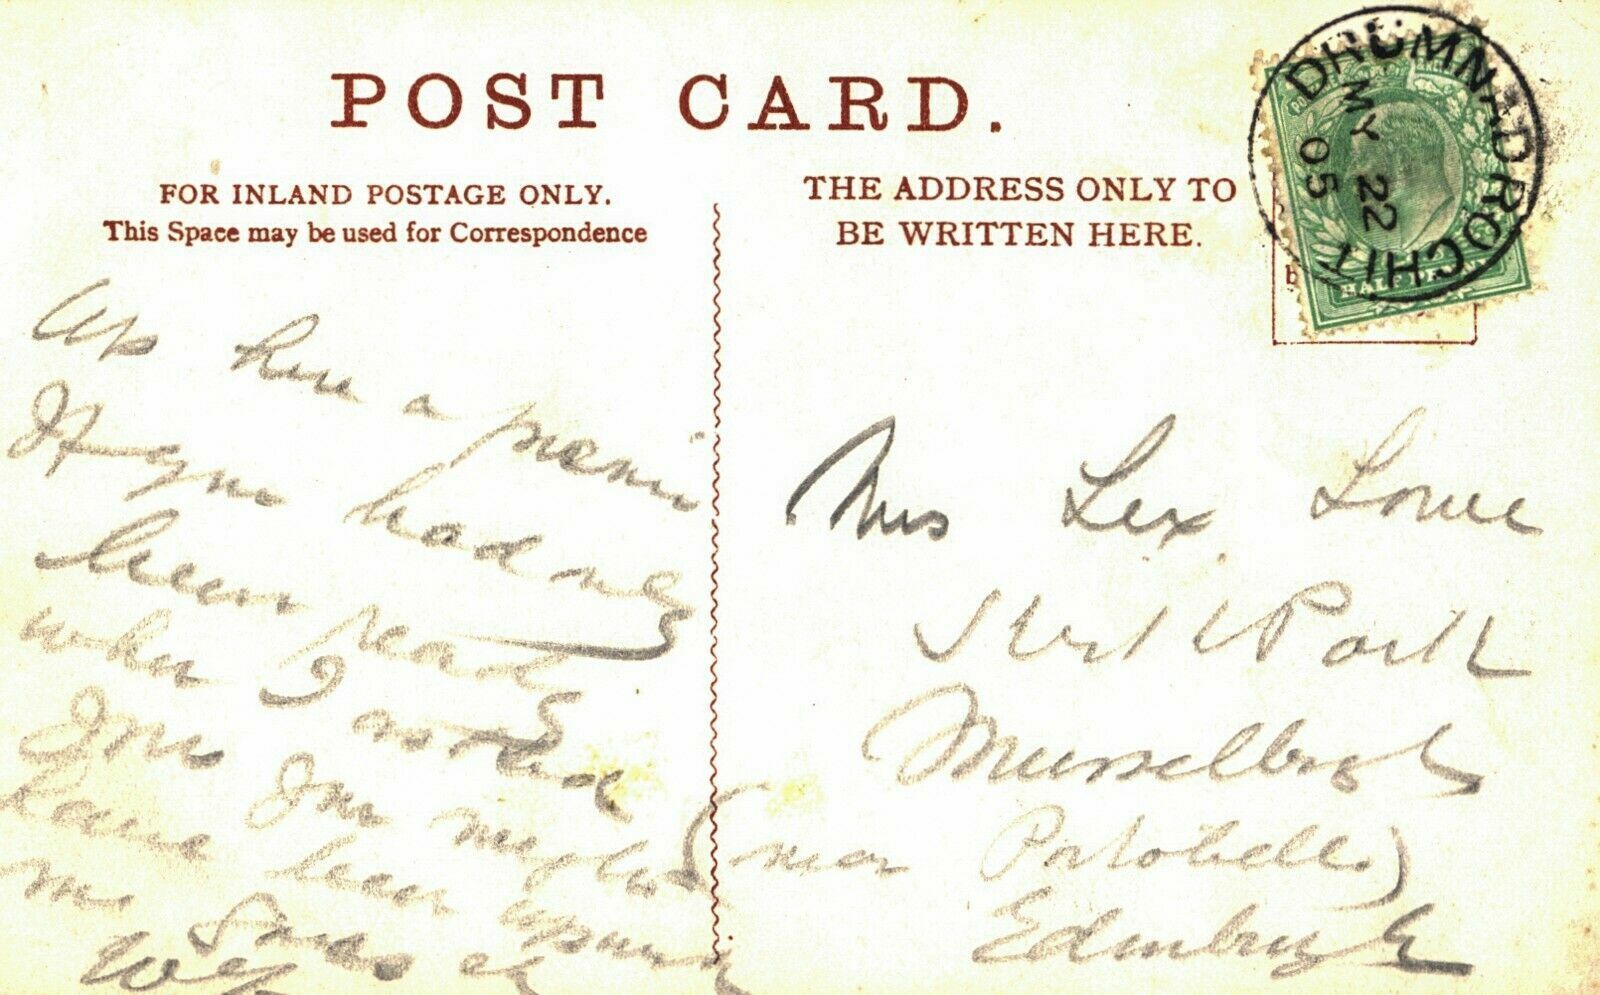 POST CARD.
FOR INLAND POSTAGE ONLY.
This Space may be used for Correspondence
THE ADDRESS ONLY TO
BE WRITTEN HERE.
DRUMNADROCHIT
MY 22
05
HALFPENNY
Up here a
If you had only
been ready
when I asked
you you might
have been
me
Mrs Lex. Lowe
Park
Musselburgh
(near Portobello)
Edinburgh